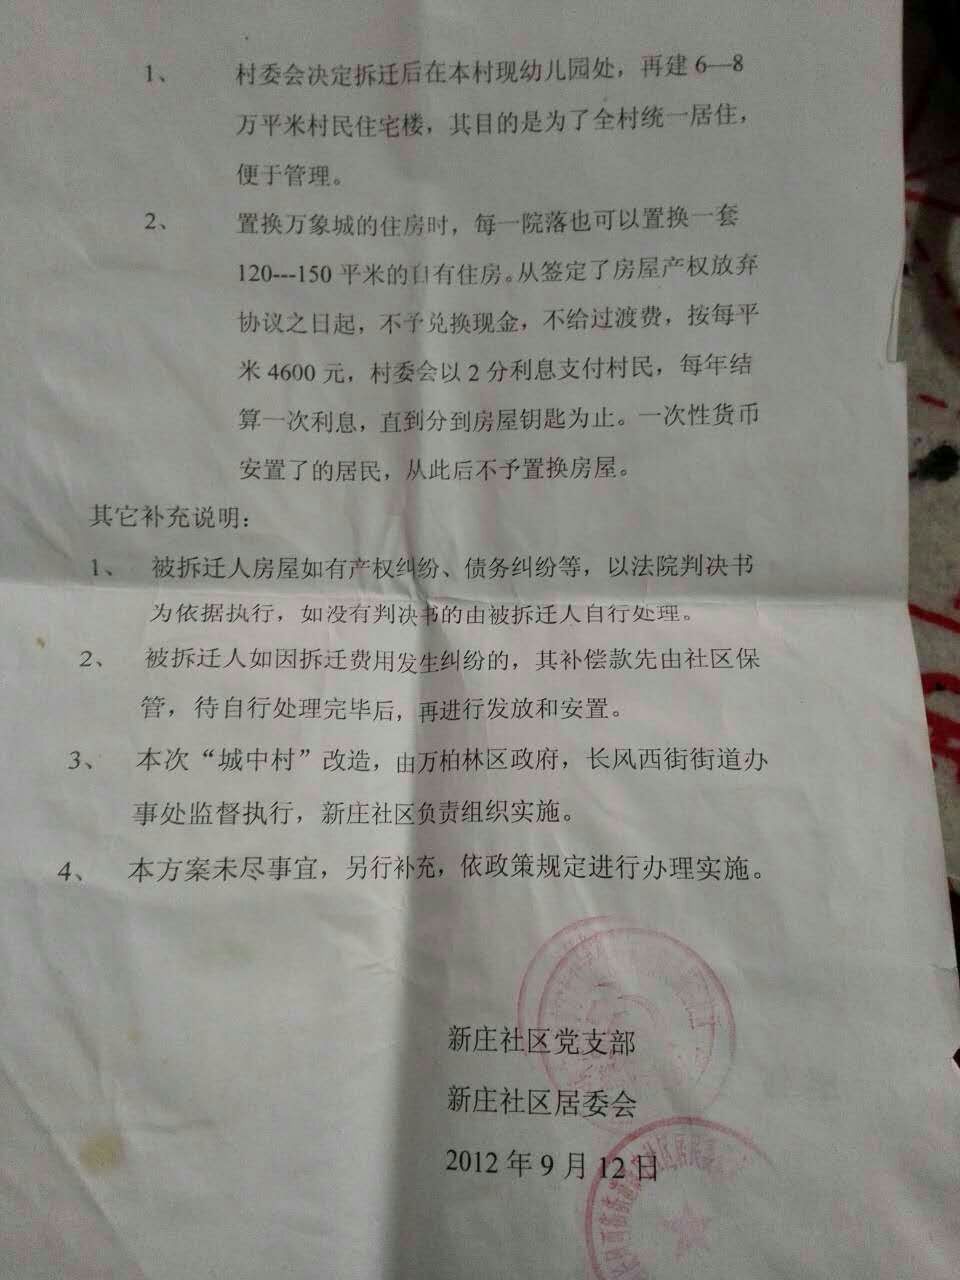 1、 村委会决定拆迁后在本村现幼儿园处，再建 6—8
万平米村民住宅楼，其目的是为了全村统一居住，
便于管理。
2、 置换万象城的住房时，每一院落也可以置换一套
120---150 平米的自有住房。从签定了房屋产权放弃
协议之日起，不予兑换现金，不给过渡费，按每平
米 4600 元，村委会以 2 分利息支付村民，每年结
算一次利息，直到分到房屋钥匙为止。一次性货币
安置了的居民，从此后不予置换房屋。
其它补充说明：
1、 被拆迁人房屋如有产权纠纷、债务纠纷等，以法院判决书
为依据执行，如没有判决书的由被拆迁人自行处理。
2、 被拆迁人如因拆迁费用发生纠纷的，其补偿款先由社区保
管，待自行处理完毕后，再进行发放和安置。
3、 本次“城中村”改造，由万柏林区政府，长风西街街道办
事处监督执行，新庄社区负责组织实施。
4、 本方案未尽事宜，另行补充，依政策规定进行办理实施。
新庄社区党支部
新庄社区居委会
2012 年 9 月 12 日